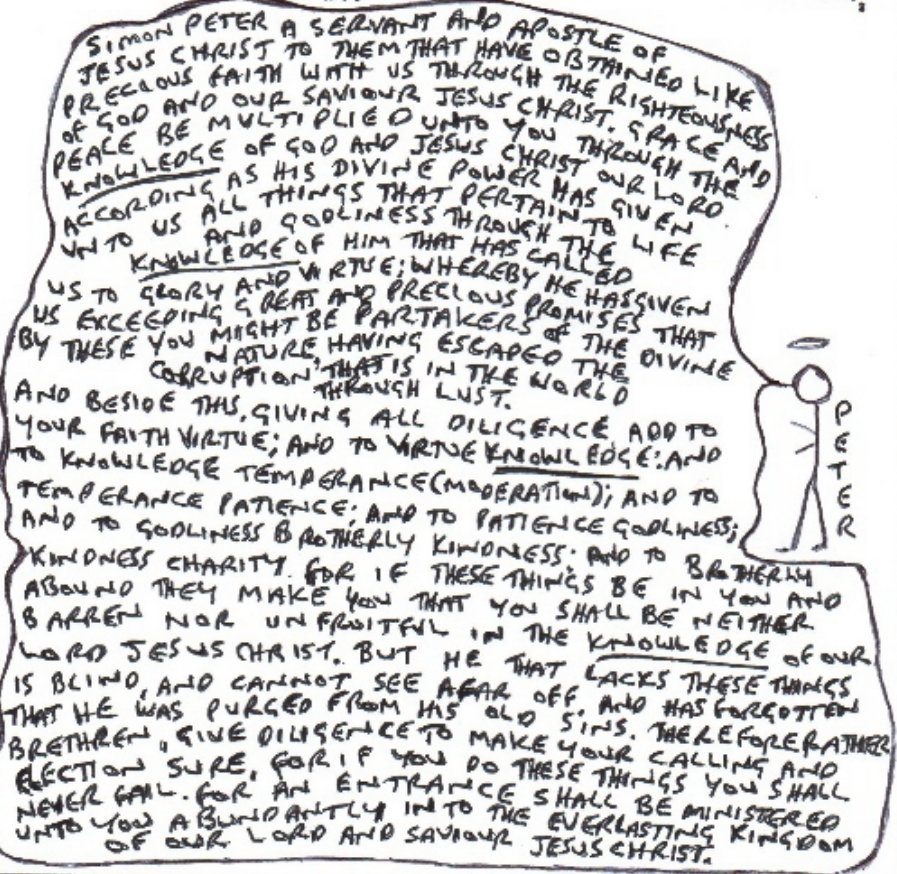 SIMON PETER A SERVANT AND APOSTLE OF
JESUS CHRIST TO THEM THAT HAVE OBTAINED LIKE
PRECIOUS FAITH WITH US THROUGH THE RIGHTEOUSNESS
OF GOD AND OUR SAVIOUR JESUS CHRIST. GRACE AND
PEACE BE MULTIPLIED UNTO YOU THROUGH THE
KNOWLEDGE OF GOD AND JESUS CHRIST OUR LORD
ACCORDING AS HIS DIVINE POWER HAS GIVEN
UNTO US ALL THINGS THAT PERTAIN TO LIFE
AND GODLINESS THROUGH THE
KNOWLEDGE OF HIM THAT HAS CALLED
US TO GLORY AND VIRTUE; WHEREBY HE HAS GIVEN
US EXCEEDING GREAT AND PRECIOUS PROMISES THAT
BY THESE YOU MIGHT BE PARTAKERS OF THE DIVINE
NATURE, HAVING ESCAPED THE
CORRUPTION THAT IS IN THE WORLD
THROUGH LUST.
AND BESIDE THIS, GIVING ALL DILIGENCE ADD TO
YOUR FAITH VIRTUE; AND TO VIRTUE KNOWLEDGE: AND
TO KNOWLEDGE TEMPERANCE (MODERATION); AND TO
TEMPERANCE PATIENCE; AND TO PATIENCE GODLINESS;
AND TO GODLINESS BROTHERLY KINDNESS; AND TO BROTHERLY
KINDNESS CHARITY. FOR IF THESE THINGS BE IN YOU AND
ABOUND THEY MAKE YOU THAT YOU SHALL BE NEITHER
BARREN NOR UNFRUITFUL IN THE KNOWLEDGE OF OUR
LORD JESUS CHRIST. BUT HE THAT LACKS THESE THINGS
IS BLIND, AND CANNOT SEE AFAR OFF, AND HAS FORGOTTEN
THAT HE WAS PURGED FROM HIS OLD SINS. THEREFORE RATHER
BRETHREN, GIVE DILIGENCE TO MAKE YOUR CALLING AND
ELECTION SURE, FOR IF YOU DO THESE THINGS YOU SHALL
NEVER FAIL. FOR AN ENTRANCE SHALL BE MINISTERED
UNTO YOU ABUNDANTLY INTO THE EVERLASTING KINGDOM
OF OUR LORD AND SAVIOUR JESUS CHRIST.
PETER